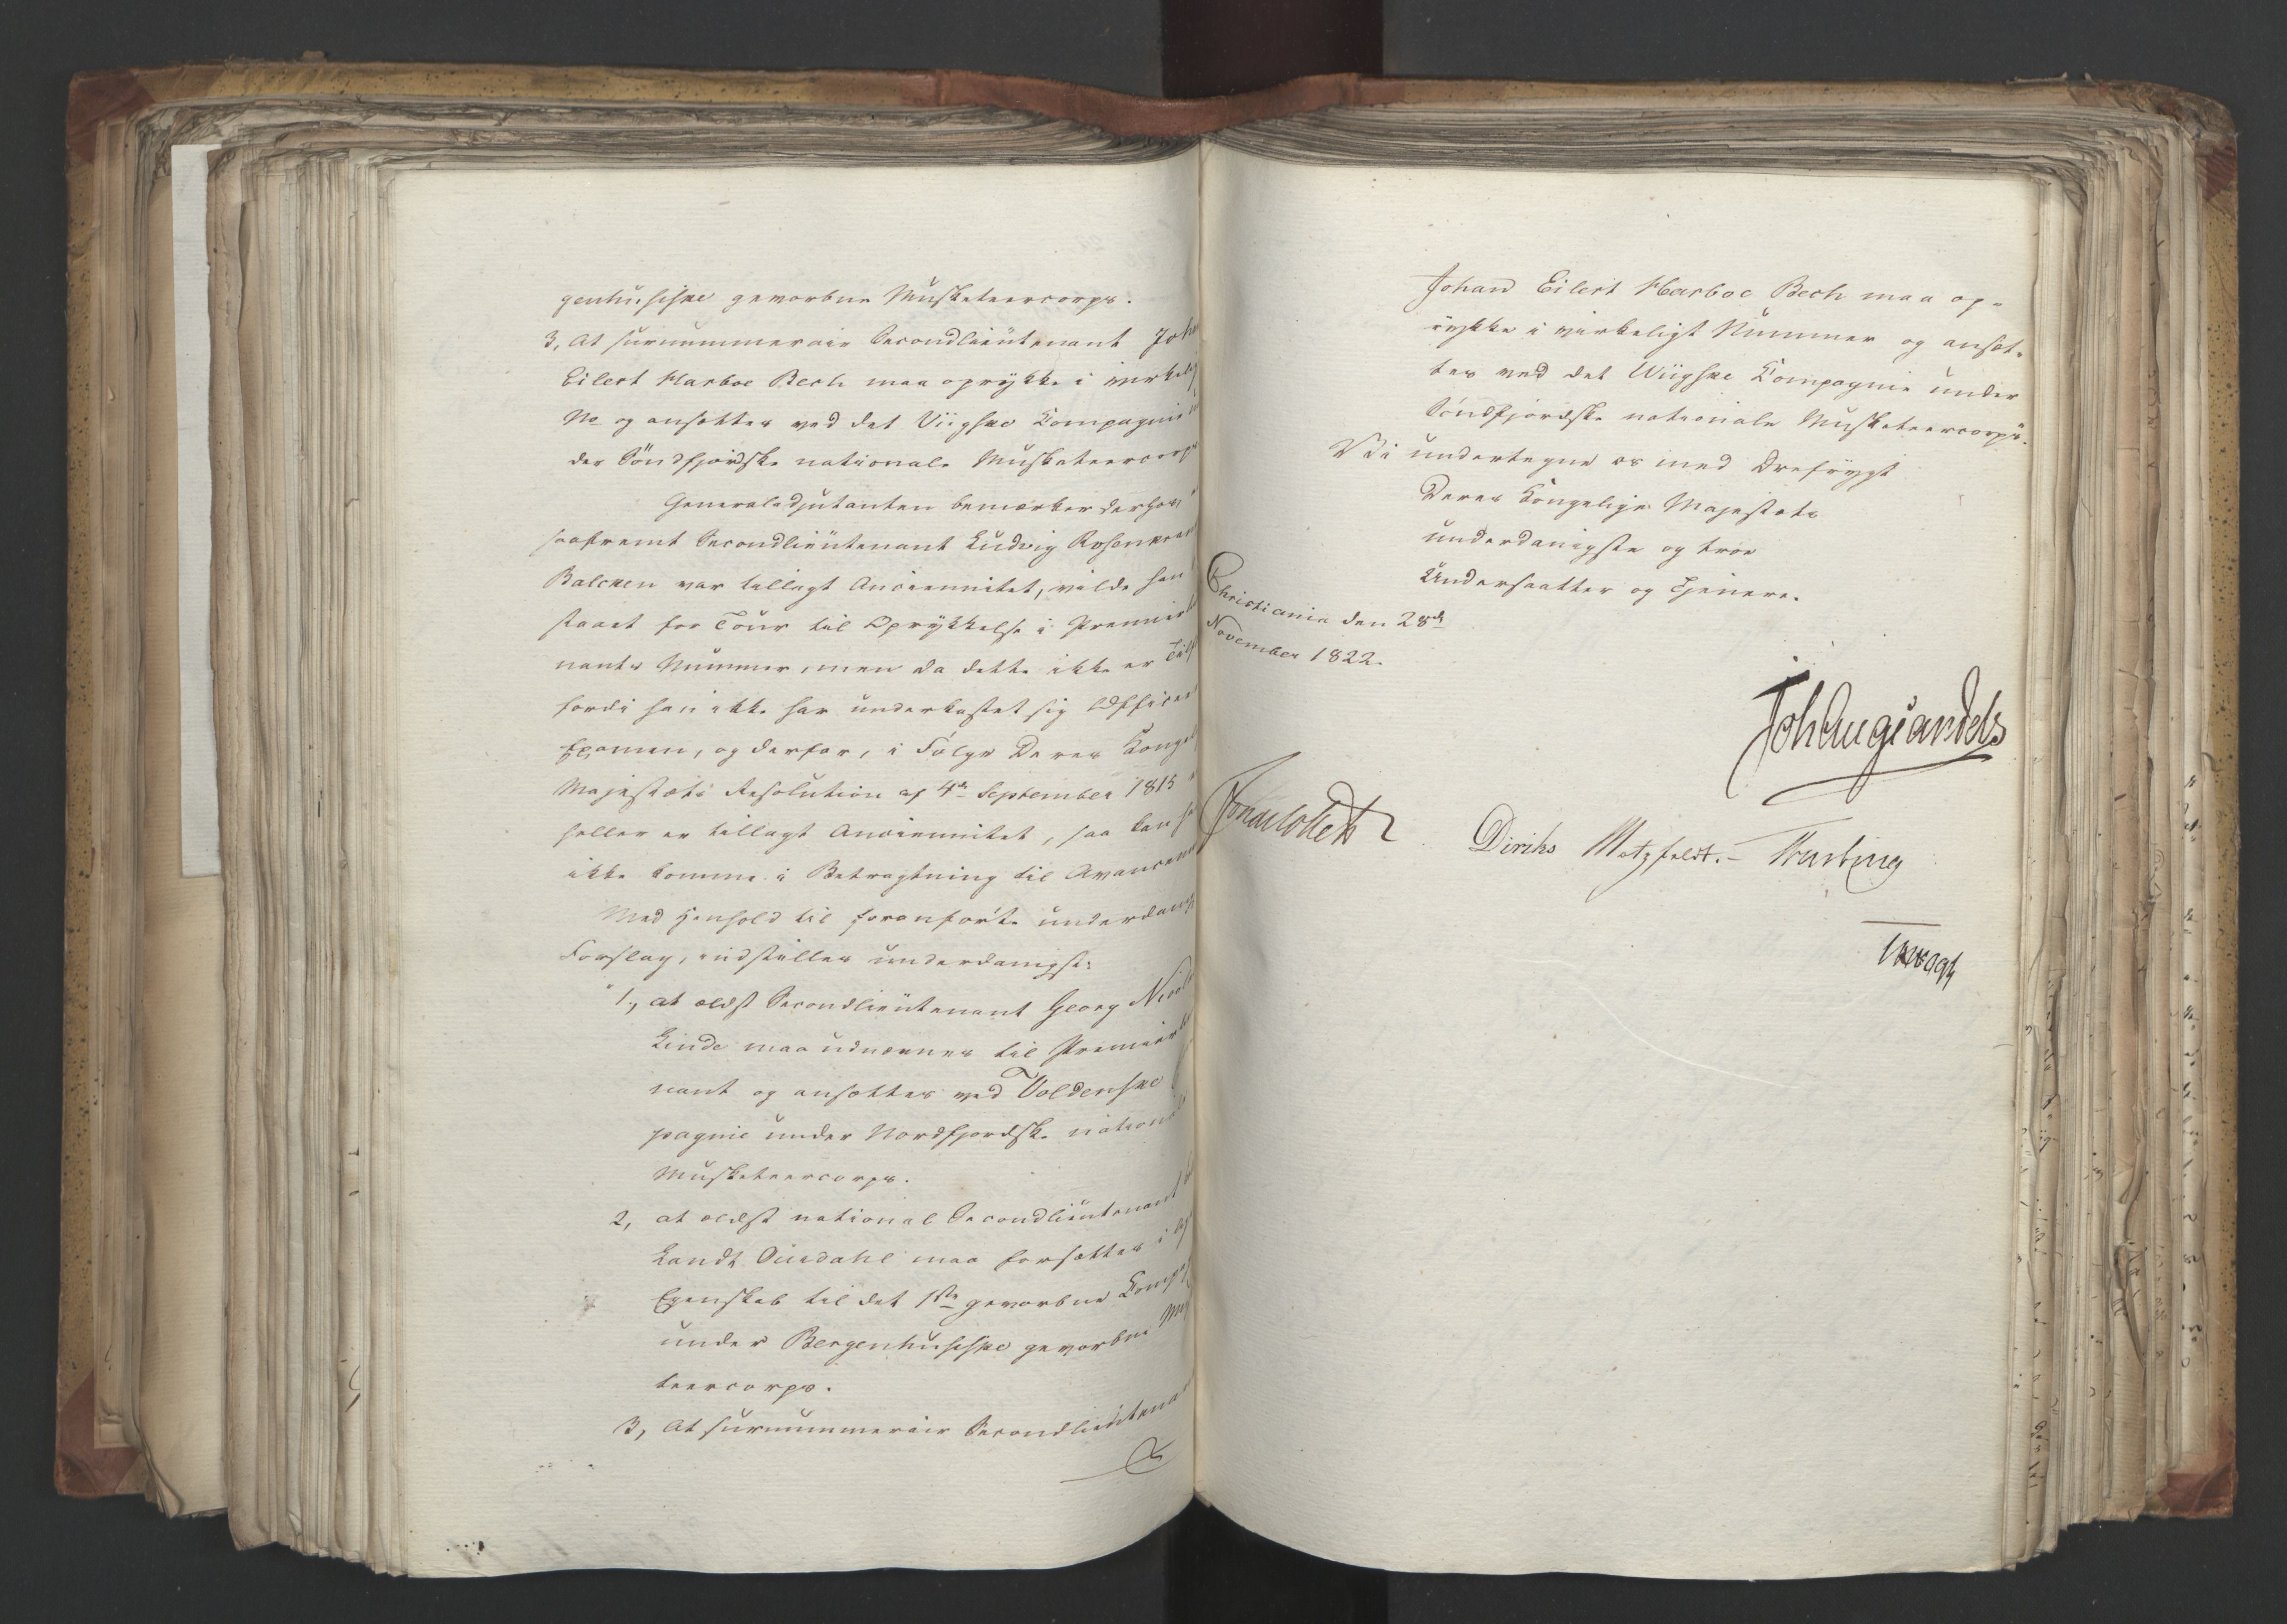 genhusiske gevorbne Musketeercorps.
3, At surnummerair Secondlieutenant Joh
Eilert Harboe Bech maa oprykke i virkelig
No og ansættes ved det Viigske Compagnie
der Söndfjordske nationale Musketeercorps
Generaladjutanten bemærker derhos,
saafremt Secondlieutenant Ludvig Rosenkran
Balchen var tillagt Anciennitet, vilde han
staaet for Tour til Oprykkelse i Premier
nants Nummer, men da dette ikke er
fordi han ikke har underkastet sig Officeer
Examen, og derfor, i Følge Deres Kongel
Majestæts Resolution af 4de September 1815
heller er tillagt Anciennitet, saa kan
ikke komme i Betragtning til Avancem
Med Henhold til foranførte underdanig
Forslag, indstilles underdanigst:
1., at ældst Secondlieutenant Georg Nicol
Linde maa udnævnes til Premier
nant og ansættes ved Voldenske
pagnie under Nordfjordske national
Musketeercorps.
2, at ældst national Secondlieutenant
Landt Ousdahl maa forsættes i
Egenskab til det 1ste gevorbne Compag
under Bergenhusiske gevorbne
teercorps.
3, At surnummerair Secondlieutenan
Johan Eilert Harboe Bech maa op-
rykke i virkeligt Nummer og ansæt-
tes ved det Wiigske Compagnie under
Söndfjordske nationale Musketeercorps.
Vi undertegne os med Ærefrygt
Deres Kongelige Majestæts
underdanigste og troe
Undersaatter og Tjenere.
Christiania den 28de
November 1822.
Joh Aug Sandels
JCollett
Diriks Motzfeldt. - Krebs